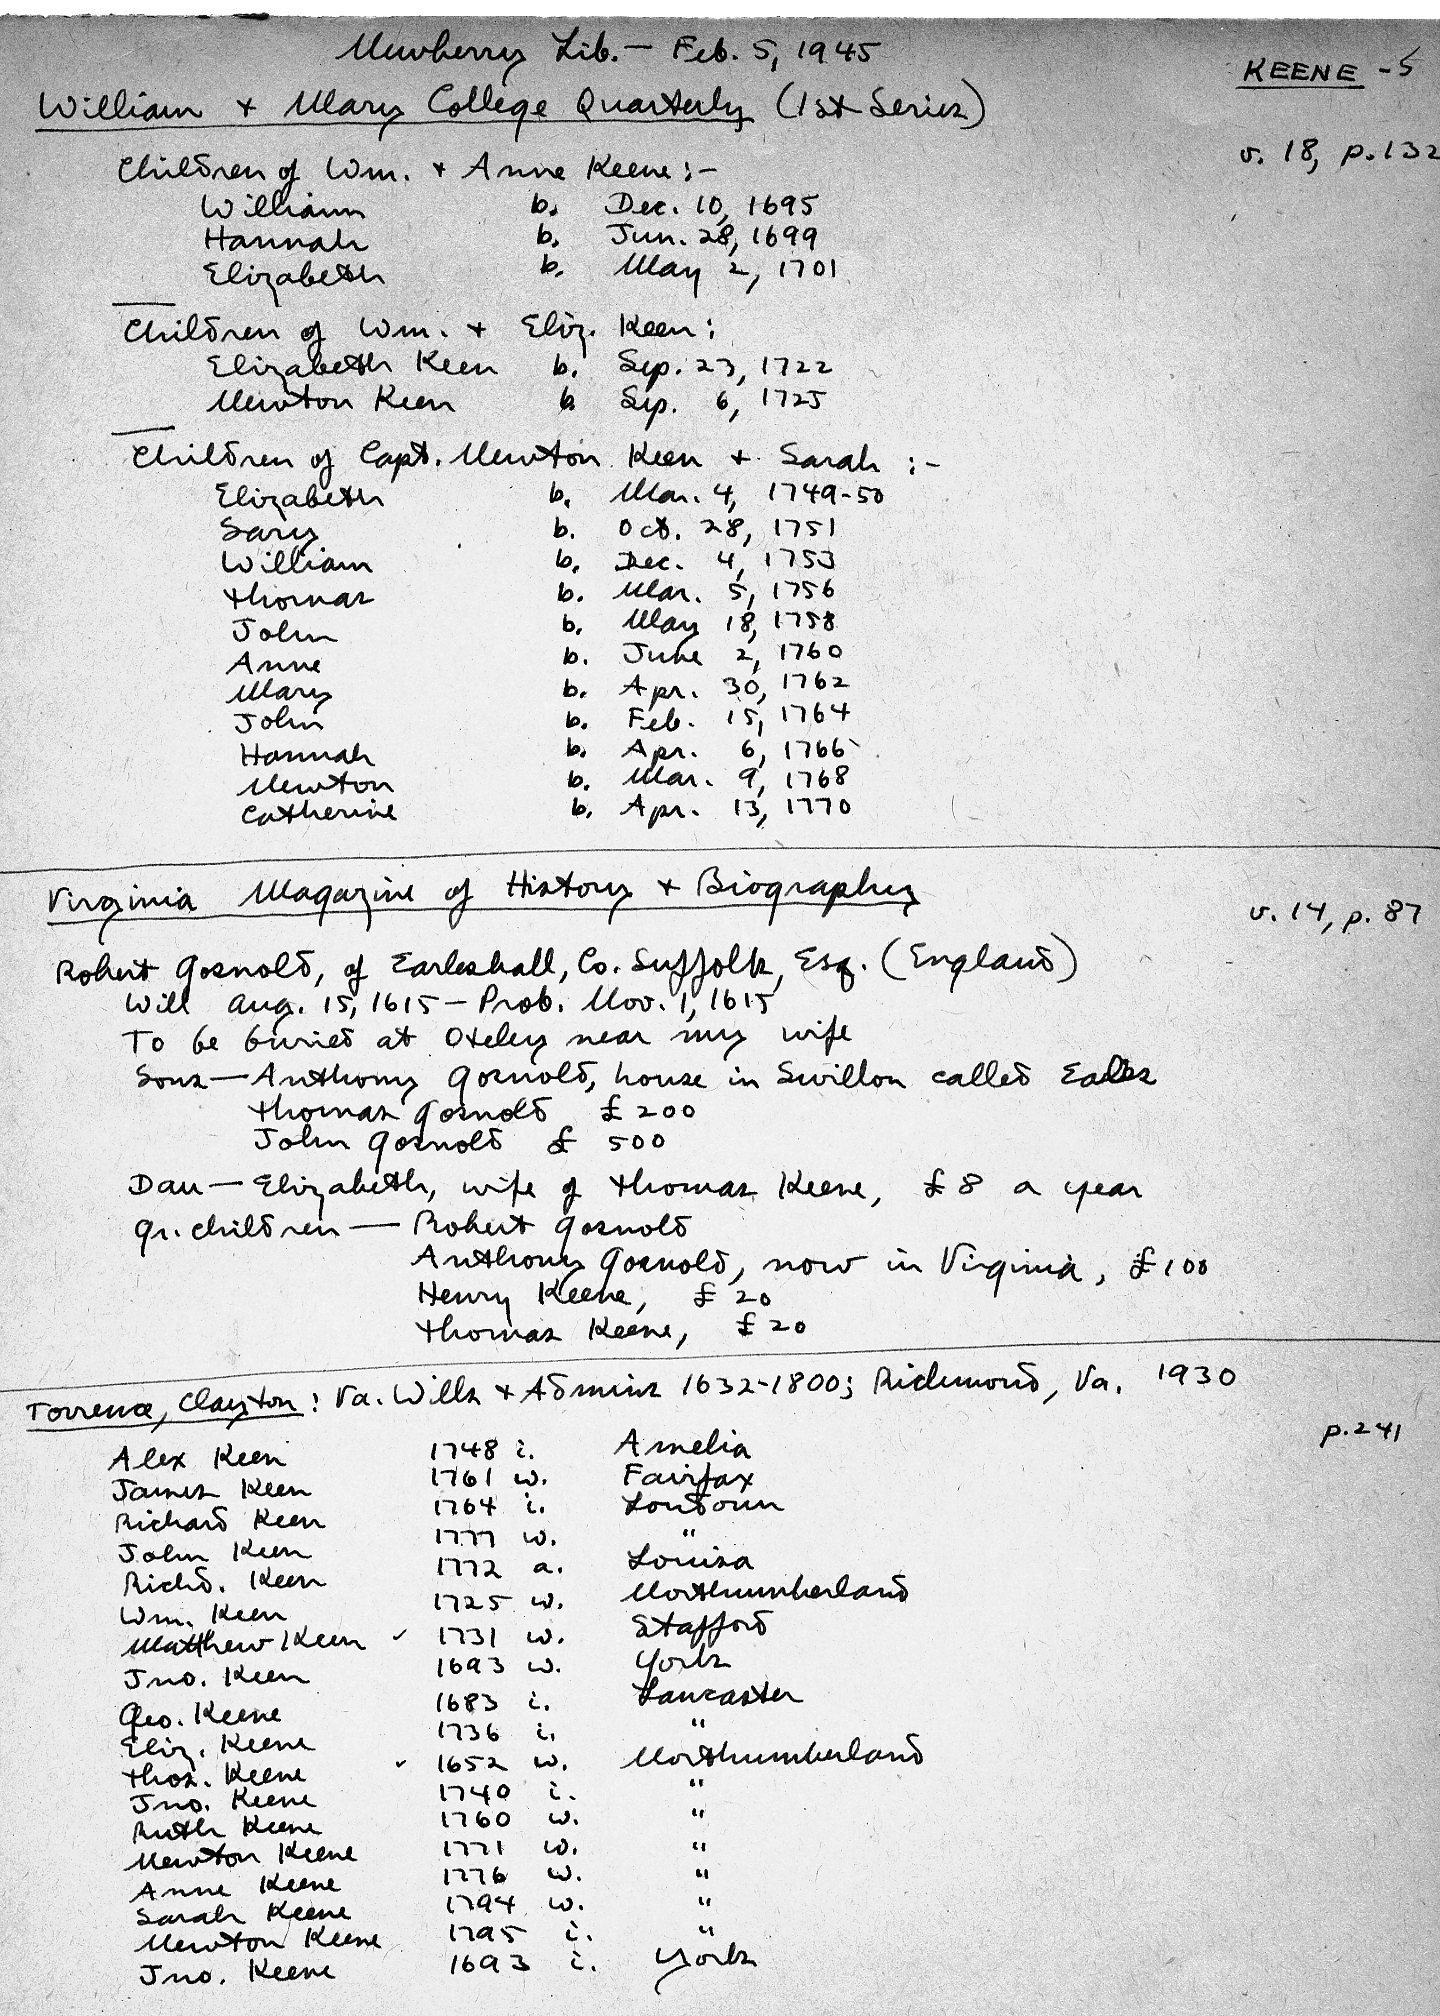 Newberry Lib. — Feb. 5, 1945
KEENE - 5
William + Mary College Quarterly (1st Series)
v. 18, p. 132
Children of Wm. + Anne Keene :-
William b. Dec. 10, 1695
Hannah b. Jun. 28, 1699
Elizabeth b. May 2, 1701
Children of Wm. + Eliz. Keen:
Elizabeth Keen b. Sep. 23, 1722
Newton Keen b Sep. 6, 1725
Children of Capt. Newton Keen + Sarah :-
Elizabeth b. Mar. 4, 1749-50
Sary b. Oct. 28, 1751
William b. Dec. 4, 1753
Thomas b. Mar. 5, 1756
John b. May 18, 1758
Anne b. June 2, 1760
Mary b. Apr. 30, 1762
John b. Feb. 15, 1764
Hannah b. Apr. 6, 1766
Newton b. Mar. 9, 1768
Catherine b. Apr. 13, 1770
Virginia Magazine of History + Biography
v. 14, p. 87
Robert Gosnold, of Earleshall, Co. Suffolk, Esq. (England)
Will Aug. 15, 1615 — Prob. Nov. 1, 1615
To be buried at Oteley near my wife
Sons — Anthony Gosnold, house in Swillon called Eales
Thomas Gosnold £ 200
John Gosnold £ 500
Dau — Elizabeth, wife of Thomas Keene, £ 8 a year
Gr. children — Robert Gosnold
Anthony Gosnold, now in Virginia, £ 100
Henry Keene, £ 20
Thomas Keene, £ 20
Torrence, Clayton: Va. Wills + Admins 1632-1800; Richmond, Va. 1930
p. 241
Alex Keen 1748 i. Amelia
James Keen 1761 w. Fairfax
Richard Keen 1764 i. Loudoun
John Keen 1777 w. "
Richd. Keen 1772 a. Louisa
Wm. Keen 1725 w. Northumberland
Matthew Keen ✓ 1731 w. Stafford
Jno. Keen 1693 w. York
Geo. Keene 1683 i. Lancaster
Eliz. Keene 1736 i. "
Thos. Keene ✓ 1652 w. Northumberland
Jno. Keene 1740 i. "
Ruth Keene 1760 w. "
Newton Keene 1771 w. "
Anne Keene 1776 w. "
Sarah Keene 1794 w. "
Newton Keene 1795 i. "
Jno. Keene 1693 i. York